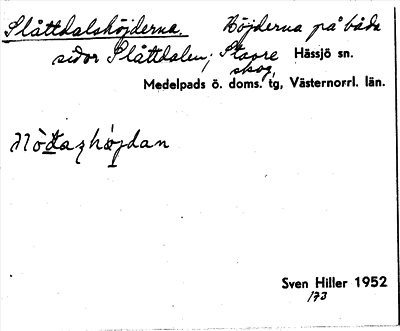 Slåttdalshöjderna. Höjderna på båda
sidor Slåttdalen, Stavre
skog, Hässjö sn.
Medelpads ö. doms. tg, Västernorrl. län.
Sven Hiller 1952
173